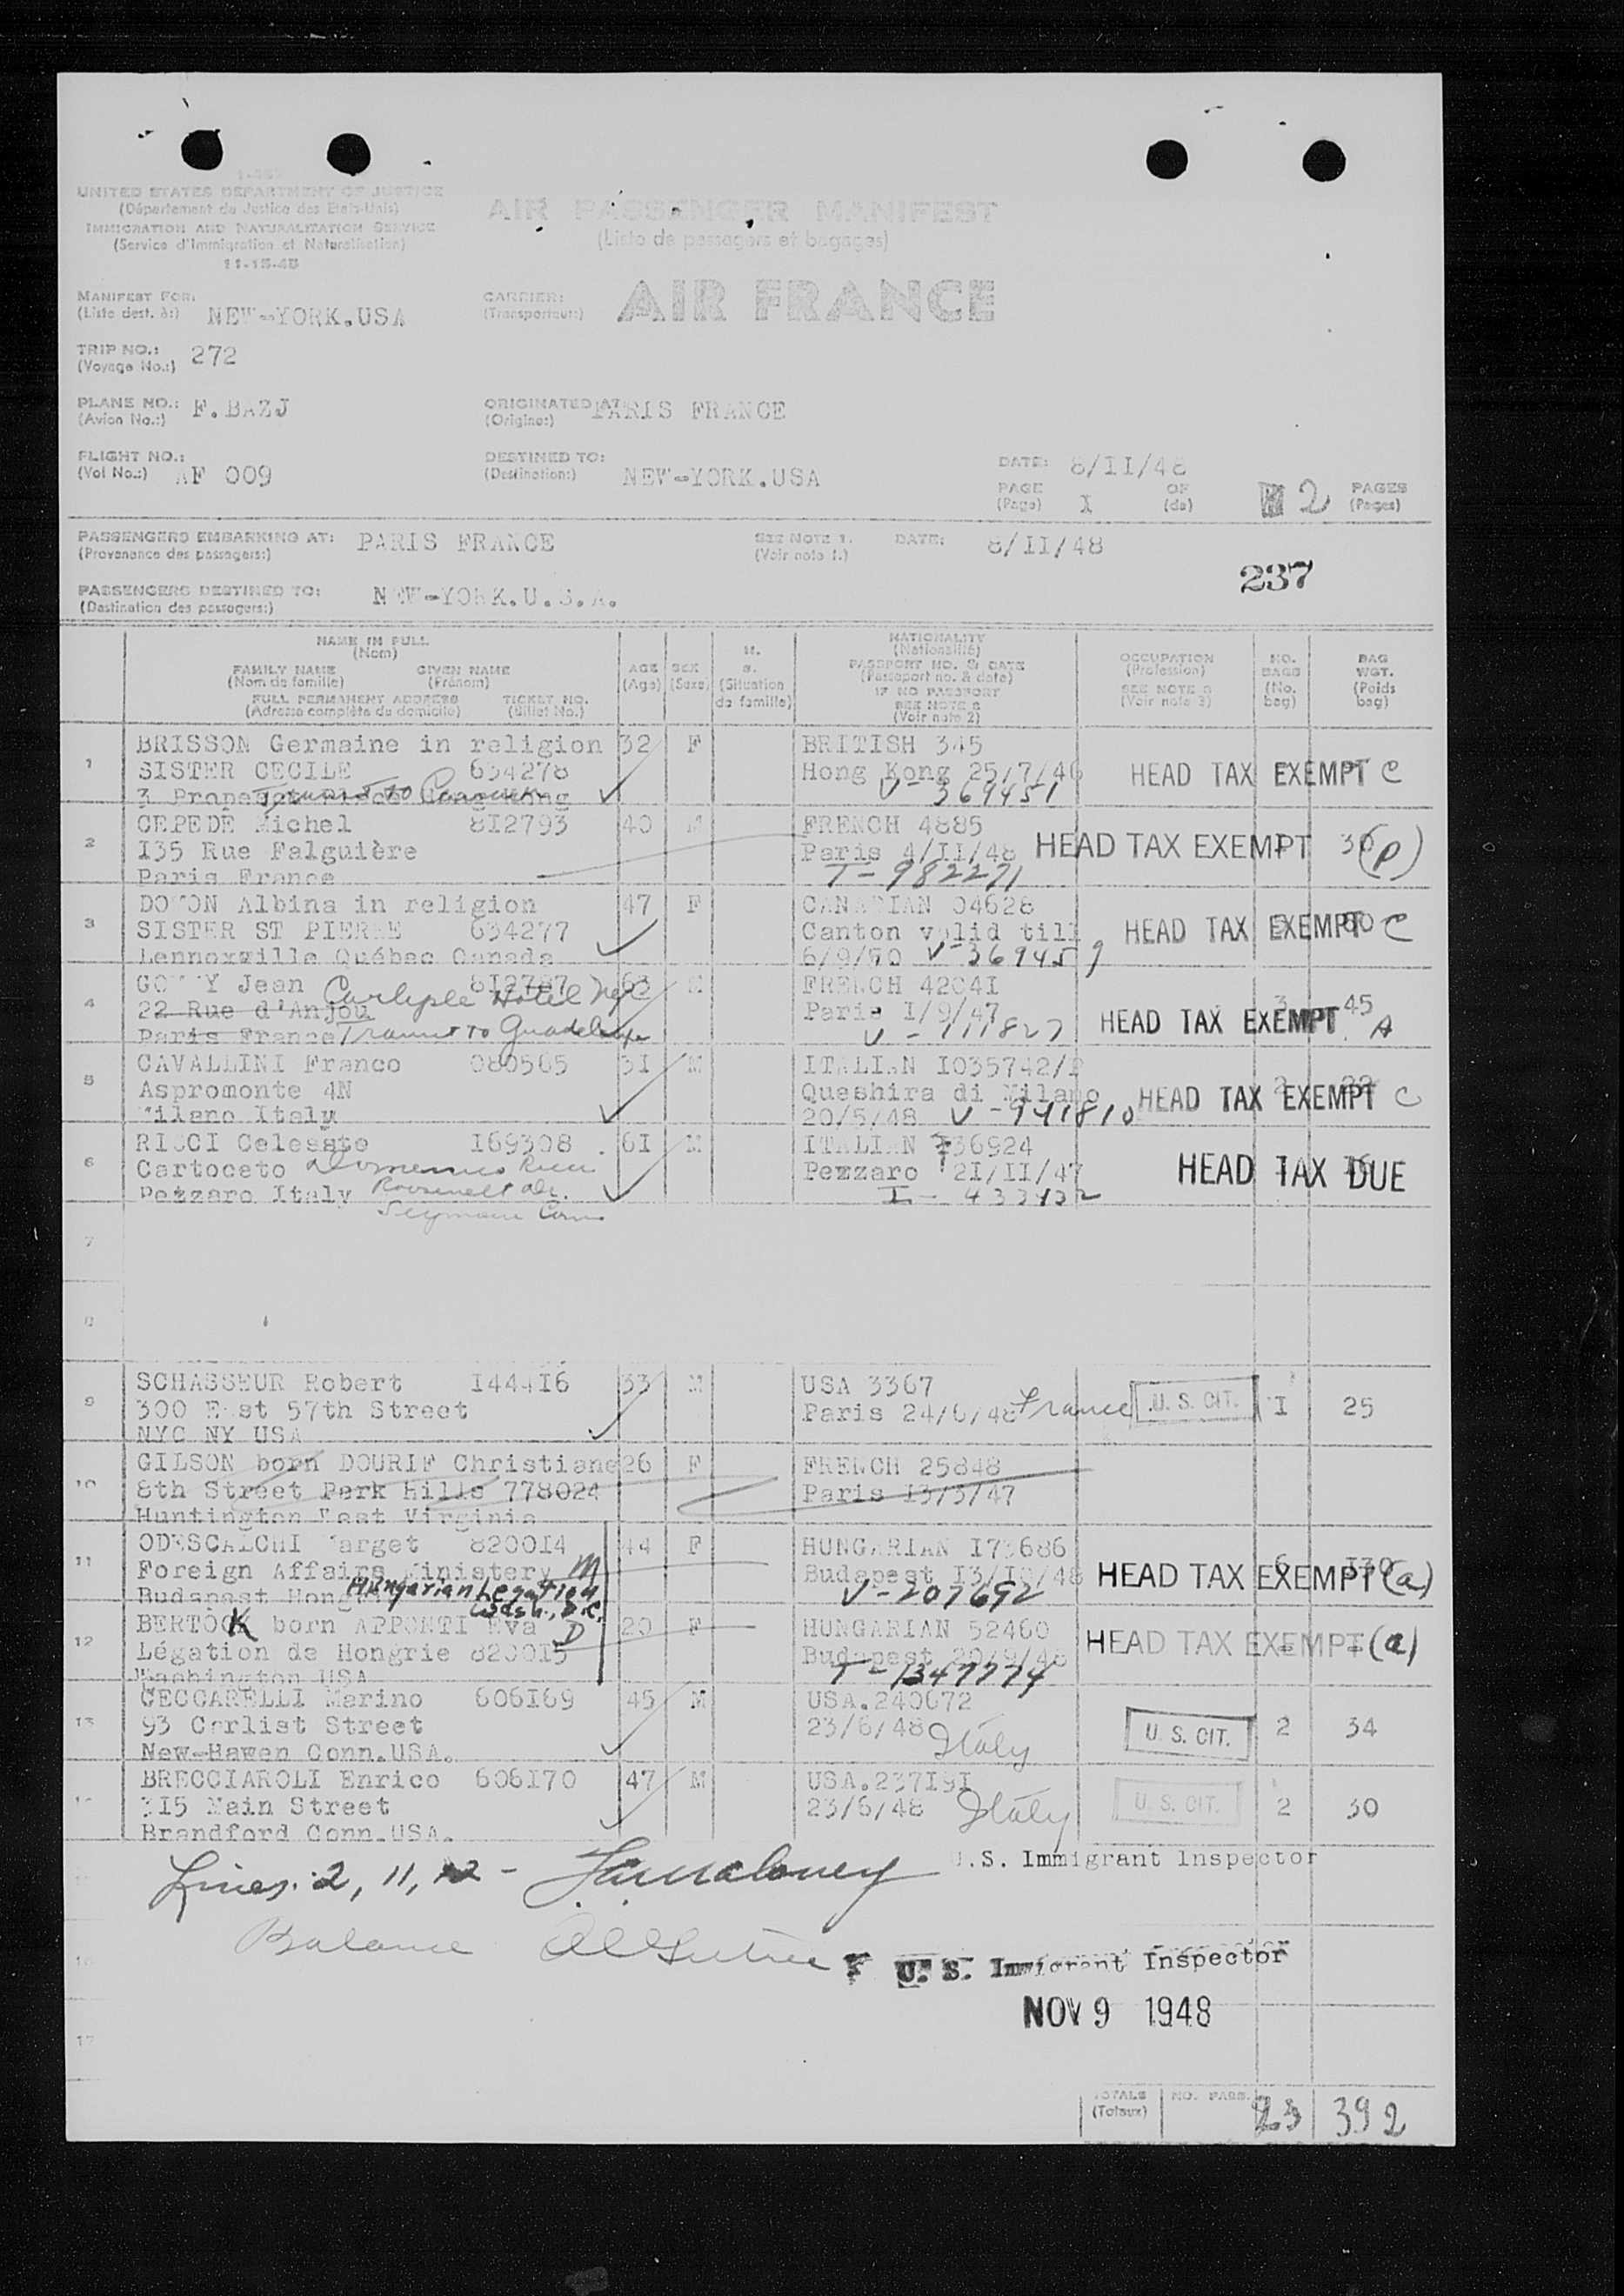 UNITED STATES DEPARTMENT OF JUSTICE
(Département de Justice des Etats-Unis)
IMMIGRATION AND NATURALIZATION SERVICE
(Service d'Immigration et Naturalisation)
11-15-45
AIR PASSENGER MANIFEST
(Liste de passagers et bagages)
MANIFEST FOR:
(Liste dest. à:)
NEW-YORK.USA
CARRIER:
(Transporteur:)
AIR FRANCE
TRIP NO.:
(Voyage No.:)
272
PLANE NO.:
(Avion No.:)
F.BAZJ
ORIGINATED AT
(Origine:)
PARIS FRANCE
FLIGHT NO.:
(Vol No.:)
AF 009
DESTINED TO:
(Destination:)
NEW-YORK.USA
DATE: 8/II/48
PAGE I OF 2 PAGES
(Page) (de) (Pages)
PASSENGERS EMBARKING AT: PARIS FRANCE
(Provenance des passagers:)
SEE NOTE 1. DATE: 8/II/48
(Voir note 1.)
237
PASSENGERS DESTINED TO: NEW-YORK.U.S.A.
(Destination des passagers:)
NAME IN FULL
(Nom)
FAMILY NAME GIVEN NAME
(Nom de famille) (Prénom)
FULL PERMANENT ADDRESS TICKET NO.
(Adresse complète de domicile) (Billet No.)
AGE
(Age)
SEX
(Sexe)
M.
S.
(Situation
de famille)
NATIONALITY
(Nationalité)
PASSPORT NO. & DATE
(Passeport no. & date)
IF NO PASSPORT
SEE NOTE 2
(Voir note 2)
OCCUPATION
(Profession)
SEE NOTE 3
(Voir note 3)
NO.
BAGS
(No.
bag)
BAG
WGT.
(Poids
bag)
1 BRISSON Germaine in religion 32 F BRITISH 345
SISTER CECILE 634278 Hong Kong 25/7/46 HEAD TAX EXEMPT C
3 Kong V-369451
2 CEPEDE Michel 8I2793 40 M FRENCH 4885
I35 Rue Falguière Paris 4/II/48 HEAD TAX EXEMPT 30 (P)
Paris France T-982271
3 DOYON Albina in religion 47 F CANADIAN 04628
SISTER ST PIERRE 634277 Canton valid till HEAD TAX EXEMPT C
Lennoxville Québec Canada 6/9/50 V-369459
4 Jean 8I2787 63 M FRENCH 4204I
Carlyle Hotel
22 Rue d'Anjou Paris I/9/47 3 45
Paris France Transit to Guadeloupe V-111827 HEAD TAX EXEMPT A
5 CAVALLINI Franco 080565 3I M ITALIAN I035742/P
Aspromonte 4N Queshira di Milano HEAD TAX EXEMPT C
Milano Italy 20/5/48 V-941810
6 RICCI Celeste I69308 6I M ITALIAN 736924
Cartoceto Domenico Ricci Pezzaro 2I/II/47 HEAD TAX DUE
Pezzaro Italy Roosevelt Dr.
Seymour Conn
7
8
9 SCHASSEUR Robert I444I6 33 M USA 3367
300 East 57th Street Paris 24/6/48 France U. S. CIT. I 25
NYC NY USA
10 GILSON born DOURIF Christiane 26 F FRENCH 25848
8th Street Park Hills 778024 Paris I3/3/47
Huntington West Virginia
11 ODESCALCHI Marget 8200I4 44 F HUNGARIAN I73686
Foreign Affairs Ministery M Budapest I3/I0/48 HEAD TAX EXEMPT (a)
Budapest Hungarian Legation V-207692
Wash., D.C.
12 BERTOCK born APPONYI Eva D 20 F HUNGARIAN 52460
Légation de Hongrie 8200I5 Budapest 20/9/48 HEAD TAX EXEMPT (a)
Washington USA T-1347774
13 CECCARELLI Marino 606I69 45 M USA.240672
93 Carlist Street 23/6/48 Italy U. S. CIT. 2 34
New-Hawen Conn.USA.
BRECCIAROLI Enrico 606I70 47 M USA.237I9I
3I5 Main Street 23/6/48 Italy U. S. CIT. 2 30
Brandford Conn.USA.
Lines: 2, 11, 12 - U.S. Immigrant Inspector
Balance
U. S. Immigrant Inspector
NOV 9 1948
17
TOTALS
(Totaux)
NO. PASS.
23 392